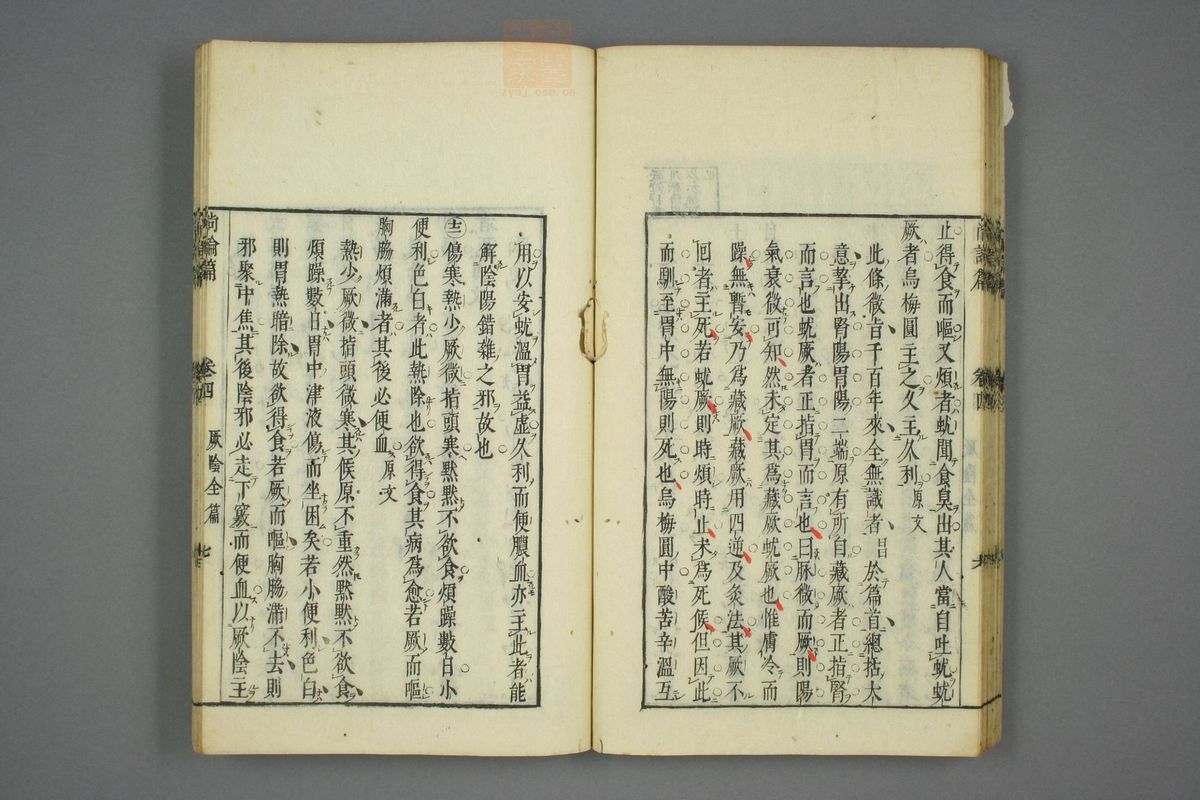 止得食而嘔又煩者蚘聞食臭出其人當自吐蚘蚘
厥者烏梅圓主之又主久利原文
此條微旨千百年來全無識者昌於篇首總括大
意挈出腎陽胃陽二端原有所自藏厥者正指腎
而言也蚘厥者正指胃而言也曰脉微而厥則陽
氣衰微可知然未定其為藏厥蚘厥也惟膚冷而
躁無暫安乃為藏厥藏厥用四逆及灸法其厥不
回者主死若蚘厥則時煩時止未為死候但因此
而馴至胃中無陽則死也烏梅圓中酸苦辛溫互
用以安蚘溫胃益虛久利而便膿血亦主此者能
解陰陽錯雜之邪故也
十二傷寒熱少厥微指頭寒黙黙不欲食煩躁數日小
便利色白者此熱除也欲得食其病為愈若厥而嘔
胸脇煩滿者其後必便血原文
熱少厥微指頭微寒其候原不重然黙黙不欲食
煩躁數日胃中津液傷而坐困矣若小便利色白
則胃熱暗除故欲得食若厥而嘔胸脇滿不去則
邪聚中焦其後陰邪必走下竅而便血以厥陰主
尚論篇 卷四 厥陰全篇 七
zysj.com.cn